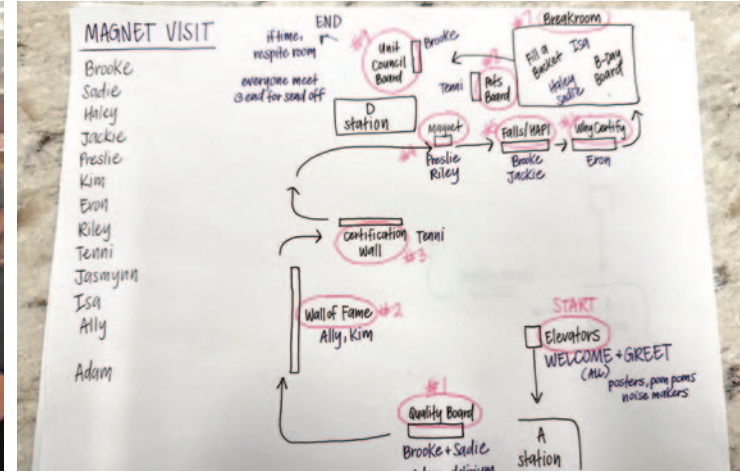 MAGNET VISIT
Brooke
Sadie
Haley
Jackie
Preslie
Kim
Eron
Riley
Tenni
Jasmynn
Isa
Ally
Adam
END
if time,
respite room
everyone meet
@ end for send off
#9
Unit
Council
Board
Brooke
#8
Pets
Board
Tenni
#7
Breakroom
Fill a
Bucket
Isa
Haley
Sadie
B-Day
Board
D
station
Magnet
#4
Preslie
Riley
Falls/HAPI
Brooke
Jackie
Why Certify
Eron
Certification
Wall
Tenni
#3
Wall of Fame
#2
Ally, Kim
START
Elevators
WELCOME + GREET
(ALL)
posters, pom poms
noise makers
#1
Quality Board
Brooke + Sadie
delirium
A
station